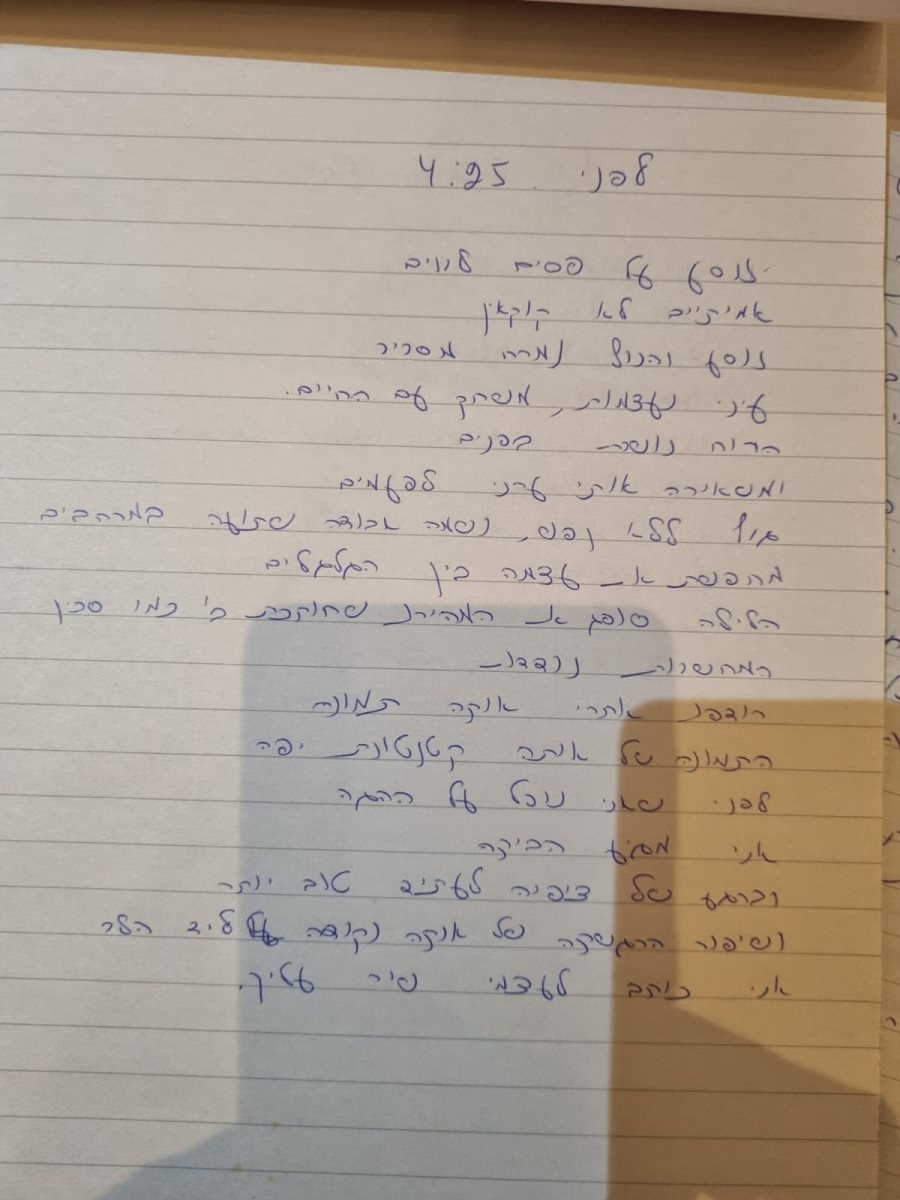 לפני 4:25
נוסע על פסים לווים
אמיתיים לא קוקאין
נוסע והנוף נמרח מסביב
עיני נעצמות, משחק עם החיים.
הרוח נושבת בפנים
ומשאירה אותי ערני לפעמים
גוף ללא נפש, נשמה אבודה שתועה במרחבים
מחפשת את עצמה בין הגלגלים
הלילה סופג את המהירות שחותכת בי כמו סכין
המחשבות נודדות
רודפות אחרי אותה תמונה
התמונה של אותה קטנטונת יפה
לפני שאני נופל על ההגה
אני מגיע הביתה
וברגע של ציפיה לעתיד טוב יותר
ושיפור ההרגשה של אותה נקודה ליד הלב
אני כותב לעצמי שיר עליך.